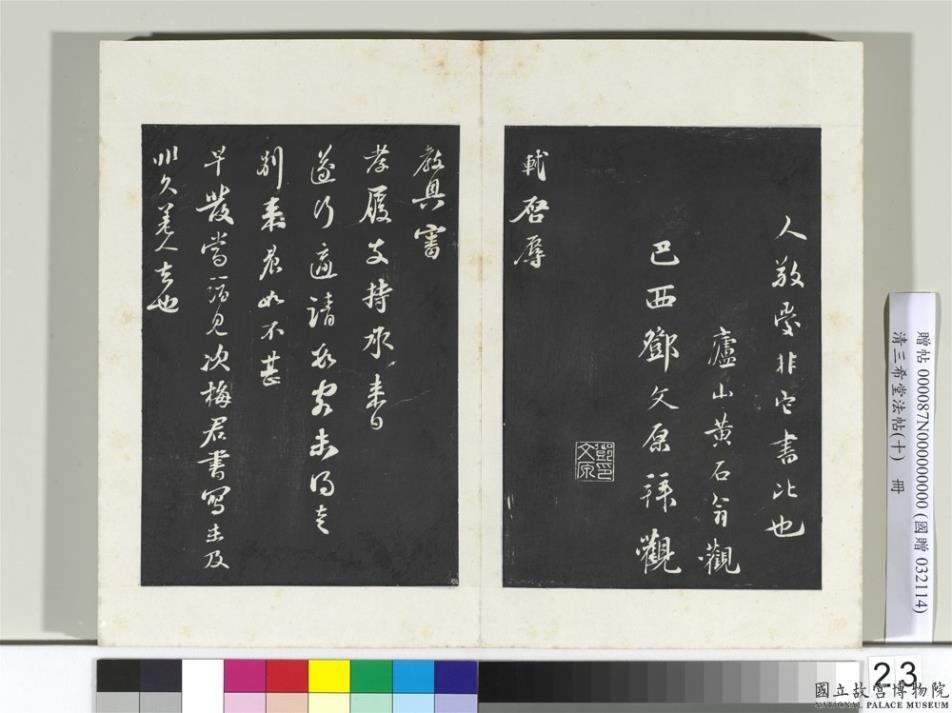 人敬愛非它書比也
廬山黃石翁觀
巴西鄧文原拜觀
鄧印文原
軾啓辱
教具審
孝履支持承來日
遂行適請數客未得走
別來晨如不甚
早發當詣見次梅君書寫未及
非久差人去也
贈帖 000087N000000000 (國贈 032114)
清三希堂法帖(十) 冊
23
國立故宮博物院
NATIONAL PALACE MUSEUM